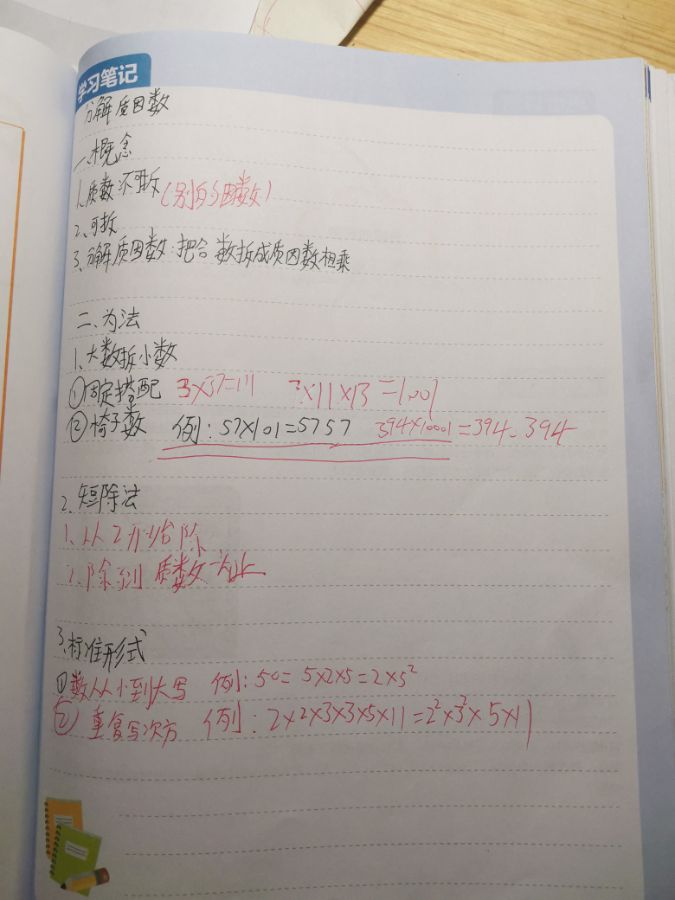 学习笔记
分解质因数
一、概念
1.质数不可拆(别的因数)
2.可拆
3.分解质因数:把合数拆成质因数相乘
二、方法
1、大数拆小数
①固定搭配 3×37=111 7×11×13=1001
②椅子数 例:57×101=5757 394×10001=394、394
2、短除法
1、从2开始除
2、除到质数为止
3、标准形式
①数从小到大写 例:50=5×2×5=2×5²
② 重复写次方 例:2×2×3×3×5×11=2²×3²×5×11